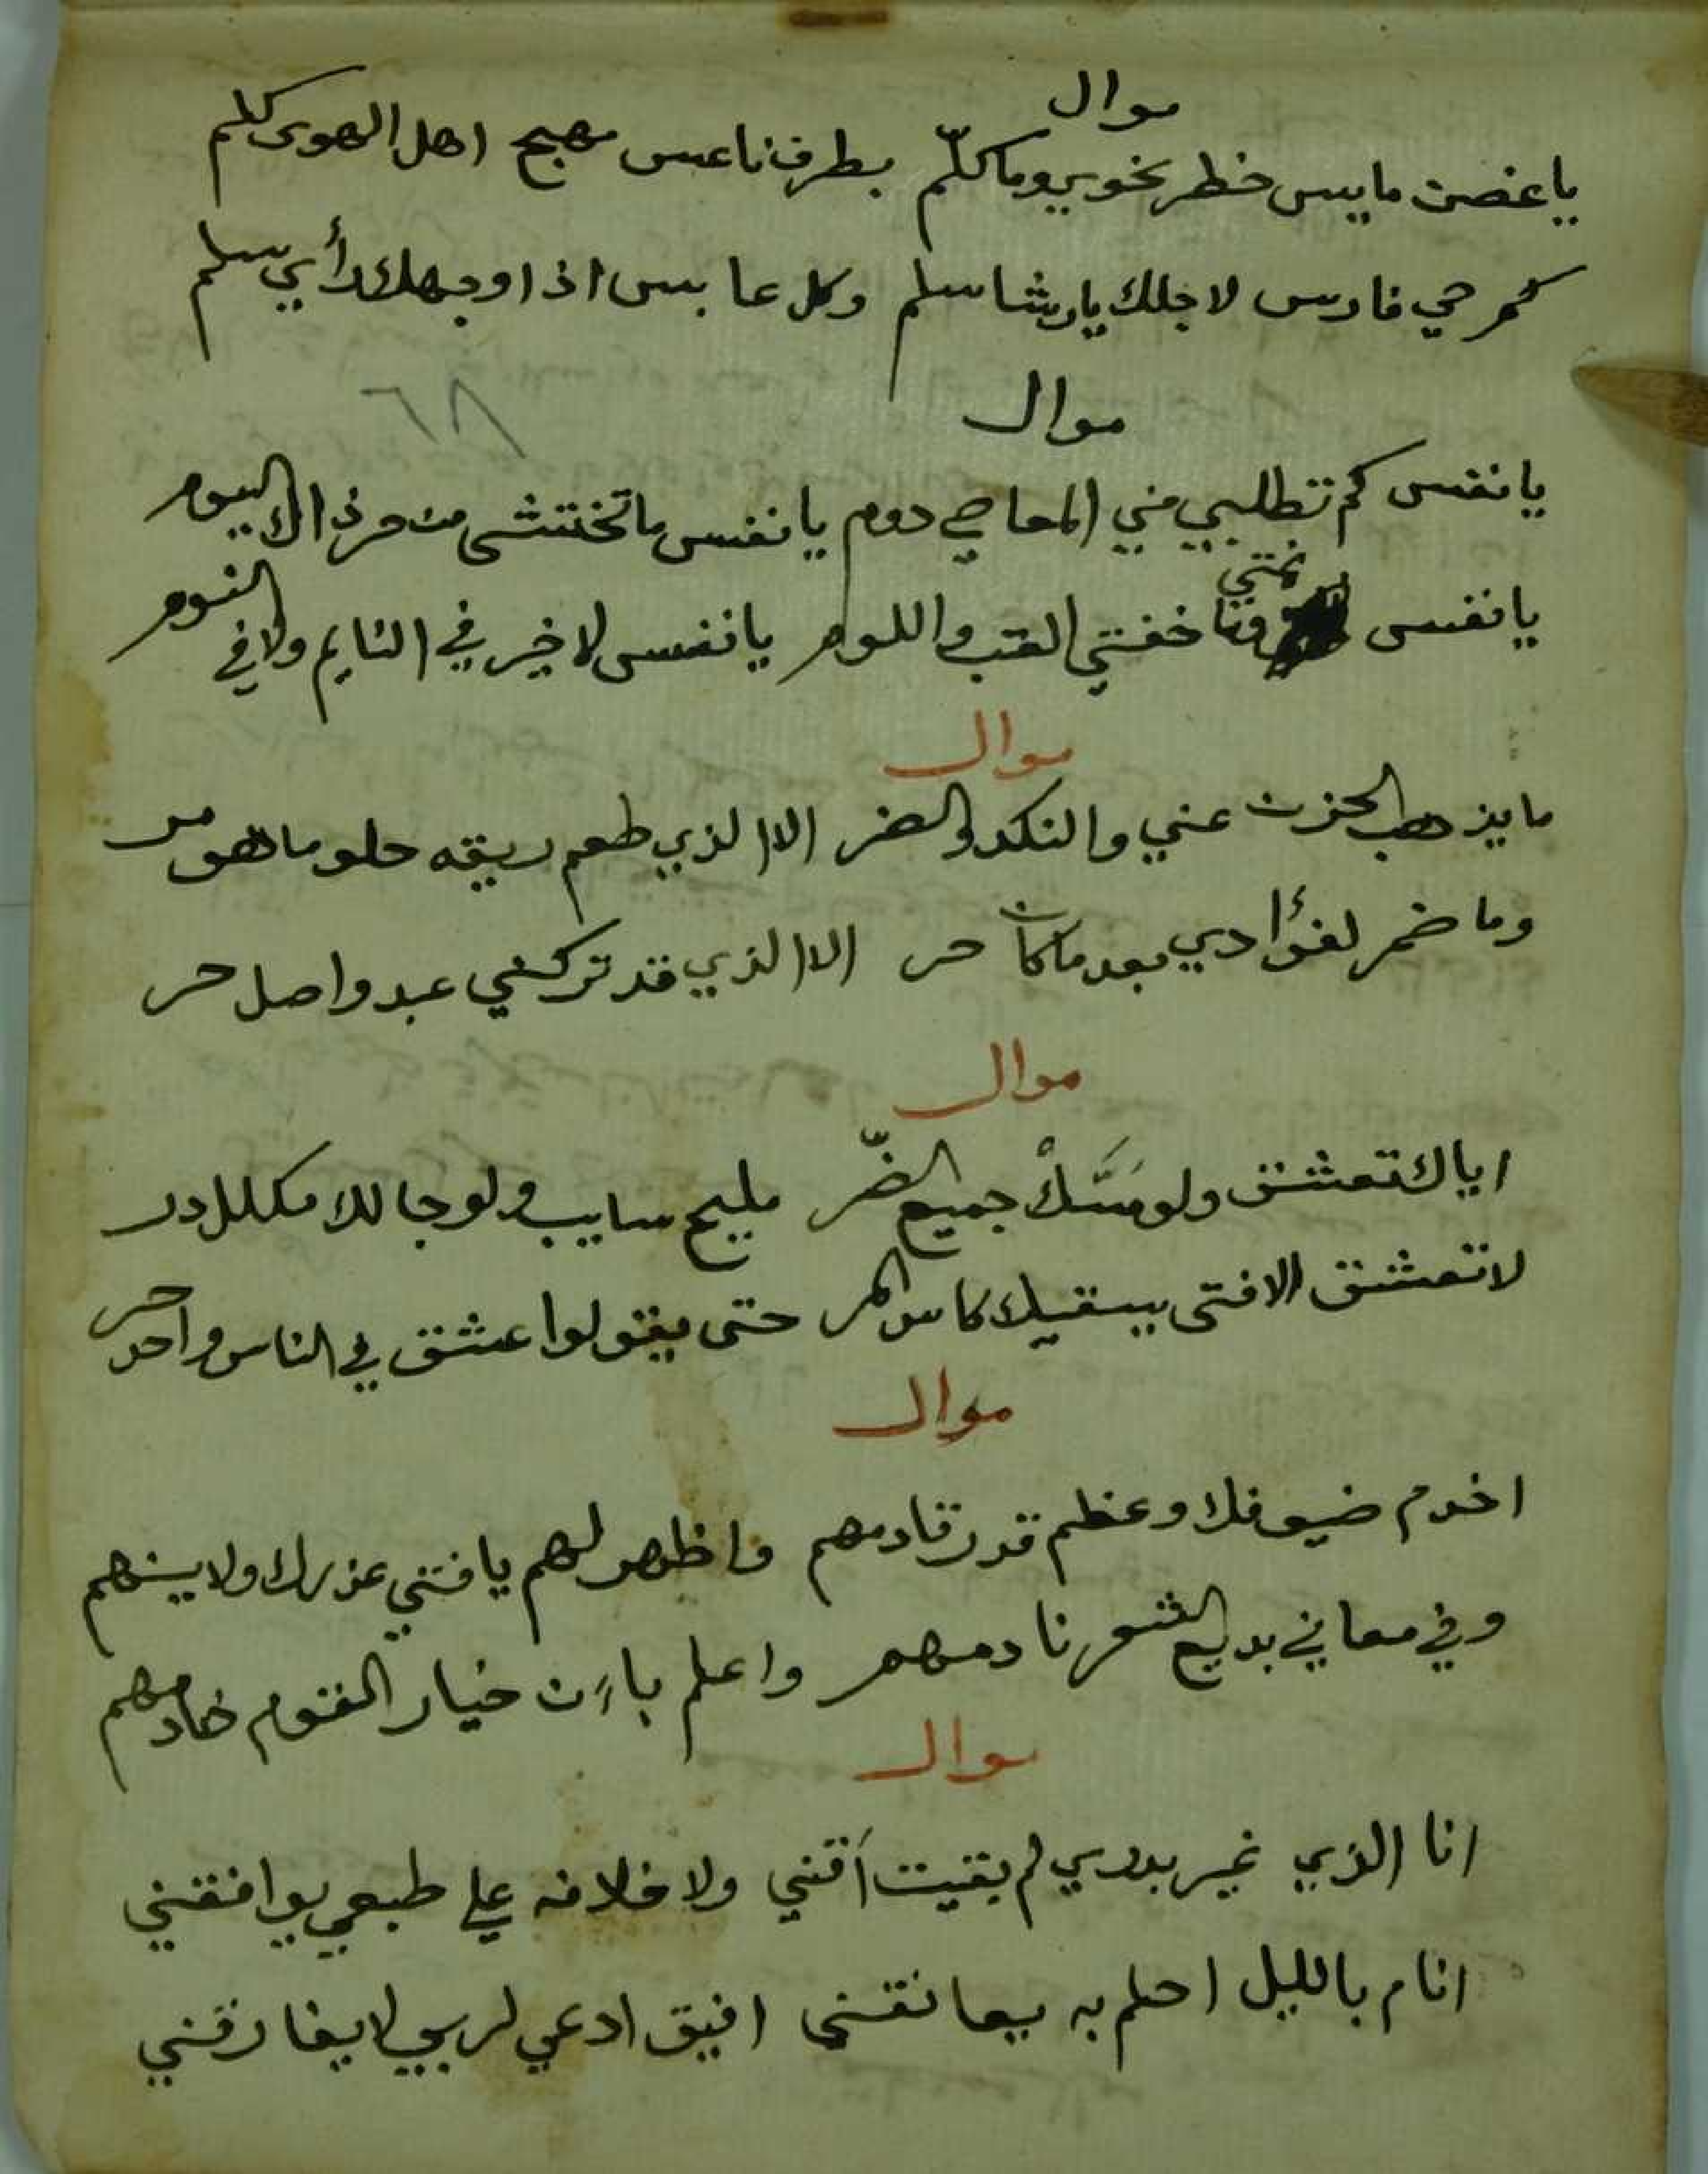 موال
ياغصن مايس خطر نحوي وماكلّم بطرف ناعس مهبج اهل الهوى كلم
كم حي فارس لاجلك يارشا سلم وكل عابس اذا وجهك رأي سلم
موال
٦٨
يانفس كم تطلبي مني المعاصي دوم يانفس ماتختشى من حر ذاك اليوم
يانفس نمتي وما خفتي العتب واللوم يانفس لاخير في النايم ولا في النوم
موال
مايذهب الحزن عني والنكد والضر الا الذي طعم ريقه حلو ماهو مر
وما ضمر لفؤادي بعد ماكان حر الا الذي قد تركني عبد واصل حر
موال
اياك تعشق ولو مَسَّكْ جميع الضّر مليح سايب ولو جا لك مكلل در
لاتعشق الا فتى يسقيك كاس المر حتى يقولوا عشق في الناس واحد حر
موال
اخدم ضيوفك وعظم قدر قادمهم واظهر لهم يا فتني عذرك ولا ينهم
وفي معاني بديع الشعر نادمهم واعلم باءن خيار القوم خادمهم
موال
انا الذي غير بدري لم بقيت أقني ولا خلافه على طبعي يوافقني
انام بالليل احلم به يعانقنى افيق ادعي لربي لا يفارقني